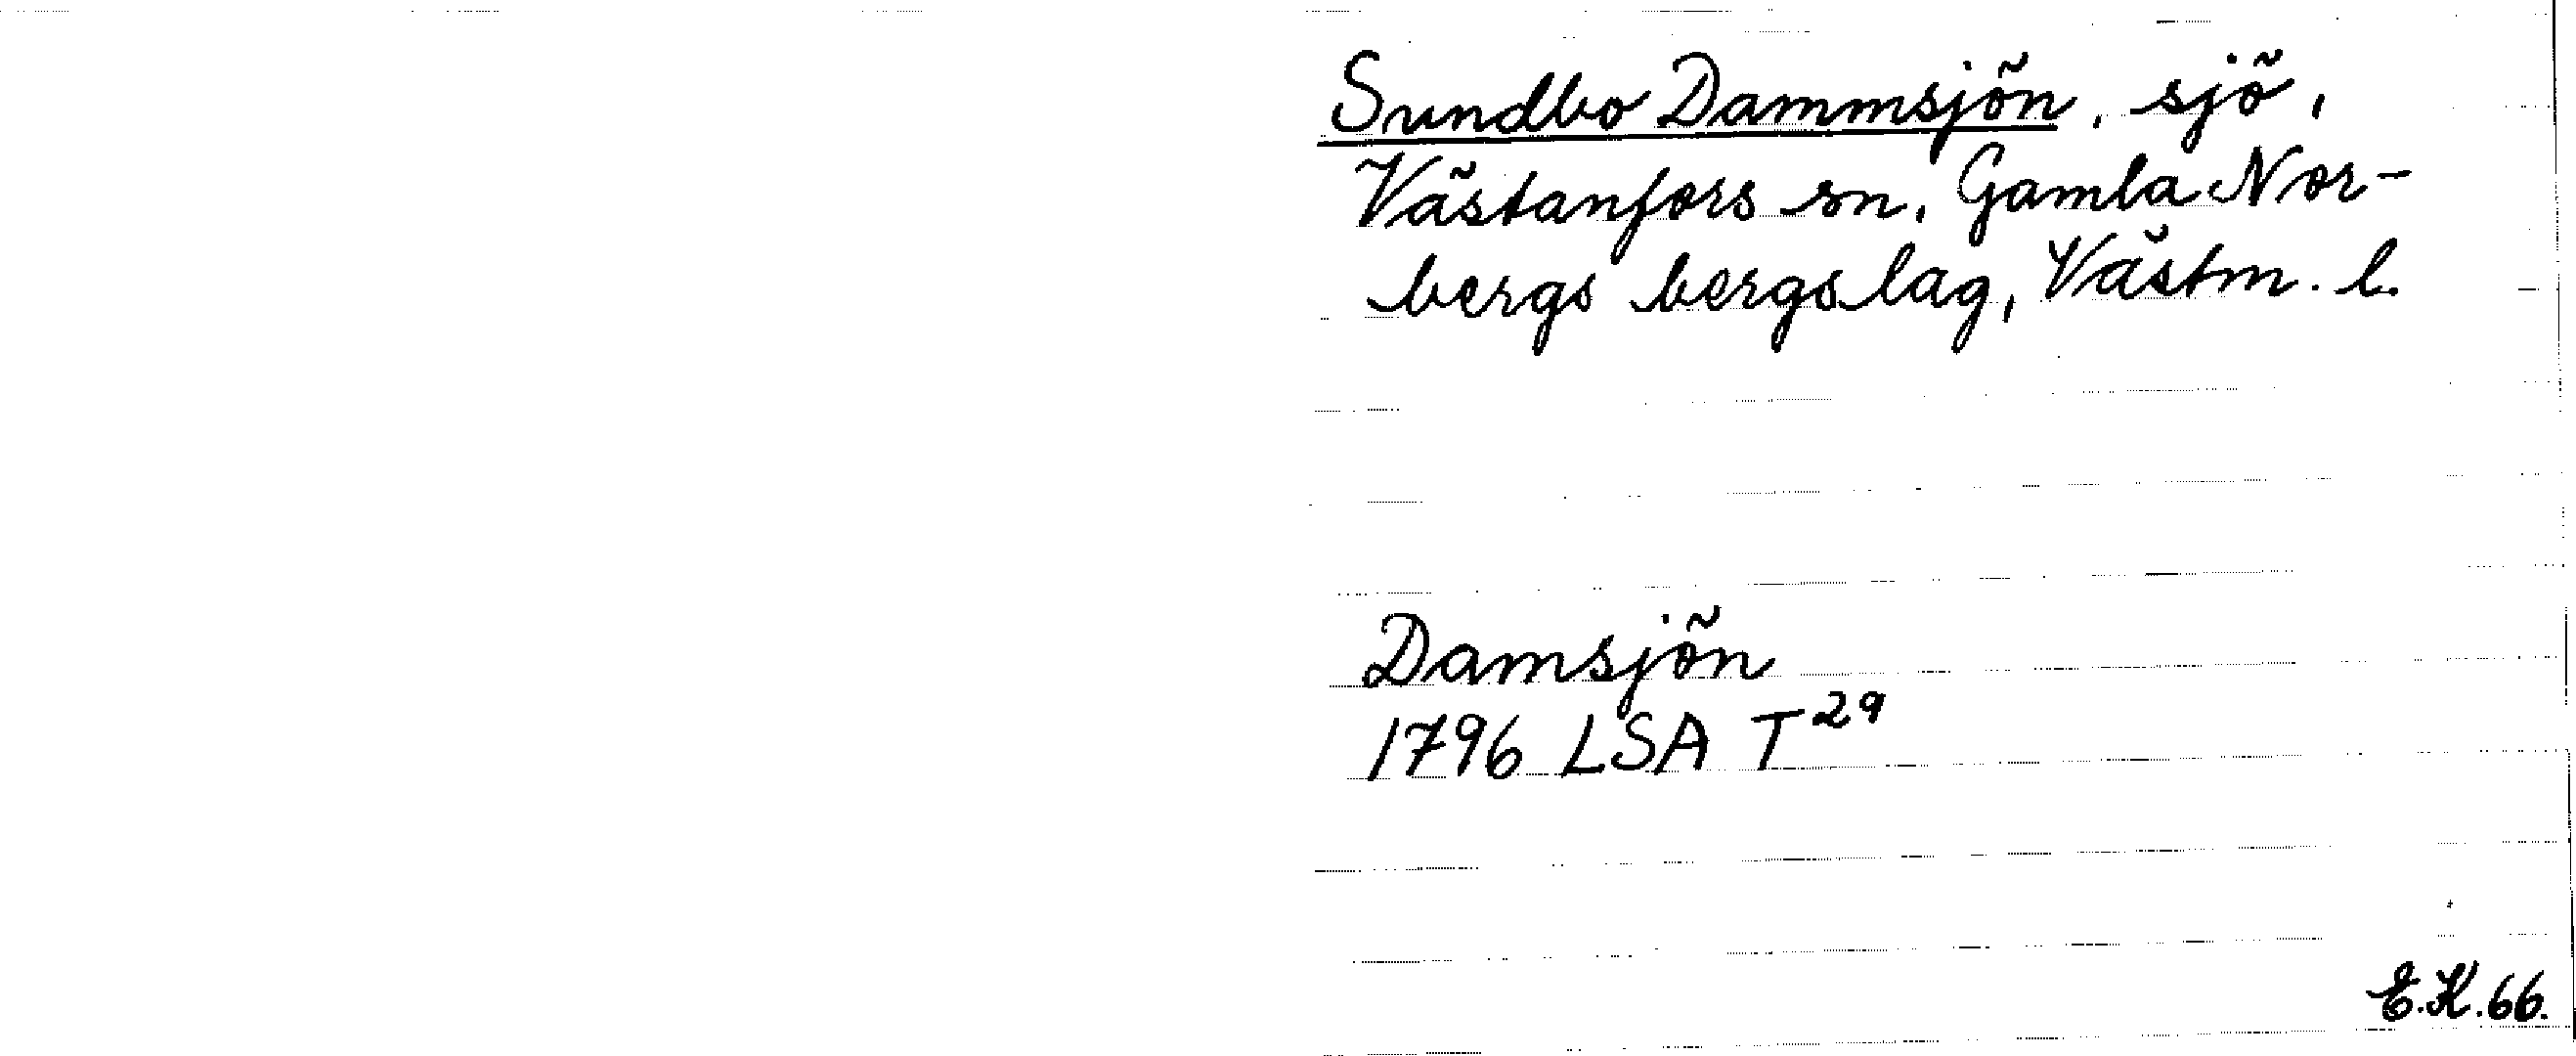 Sundbo Dammsjön, sjö,
Västanfors sn, Gamla Nor-
bergs bergslag, Västm. l.
Damsjön
1796 LSA T²⁹
E.K.66.